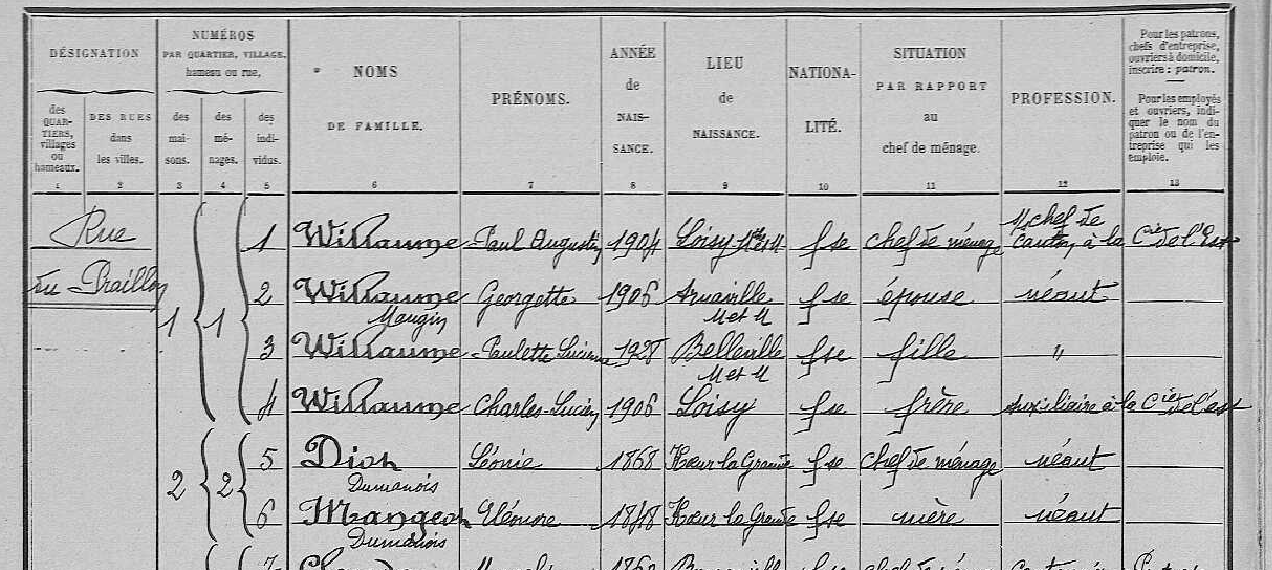 DÉSIGNATION
des QUAR-TIERS, villages ou hameaux.
DES RUES dans les villes.
NUMÉROS PAR QUARTIER, VILLAGE, hameau ou rue,
des mai-sons.
des mé-nages.
des indi-vidus.
NOMS DE FAMILLE.
PRÉNOMS.
ANNÉE de NAIS-SANCE.
LIEU de NAISSANCE.
NATIONA-LITÉ.
SITUATION PAR RAPPORT au chef de ménage.
PROFESSION.
Pour les patrons, chefs d'entreprise, ouvriers à domicile, inscrire : patron.
Pour les employés et ouvriers, indi-quer le nom du patron ou de l'en-treprise qui les emploie.
1 2 3 4 5 6 7 8 9 10 11 12 13
Rue
1 Willaume Paul Augustin 1904 Loisy f se chef de ménage chef de canton à la Cie de l'Est
du Praillon
1 1
2 Willaume Georgette 1906 Arnaville f se épouse néant
Maugin M et M
3 Willaume Paulette Lucienne 1928 Belleville f se fille "
M et M
4 Willaume Charles-Lucien 1906 Loisy f se frère Auxiliaire à la Cie de l'est
2 2
5 Dion Léonie 1868 Kœur la Grande f se chef de ménage néant
Dumanois
6 Mangeot Eléonore 1848 Kœur la Grande f se mère néant
Dumanois